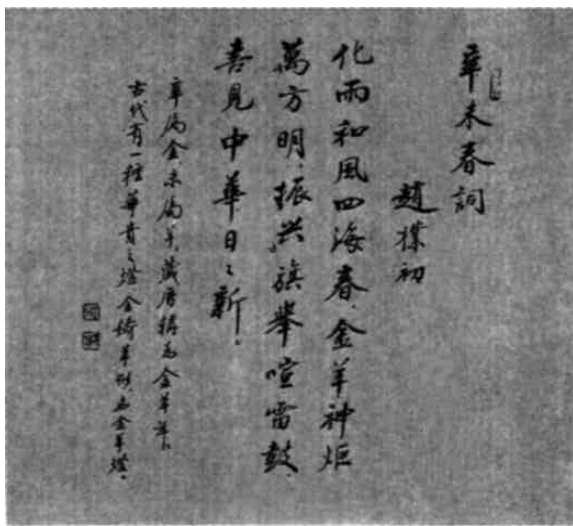 辛未春詞
趙樸初
化雨和風四海春金羊神炬
萬方明振興旗舉喧雷鼓
喜見中華日々新
辛為金未為羊藏曆稱為金羊年
古代有一種華貴之燈金鑄羊形名金羊燈